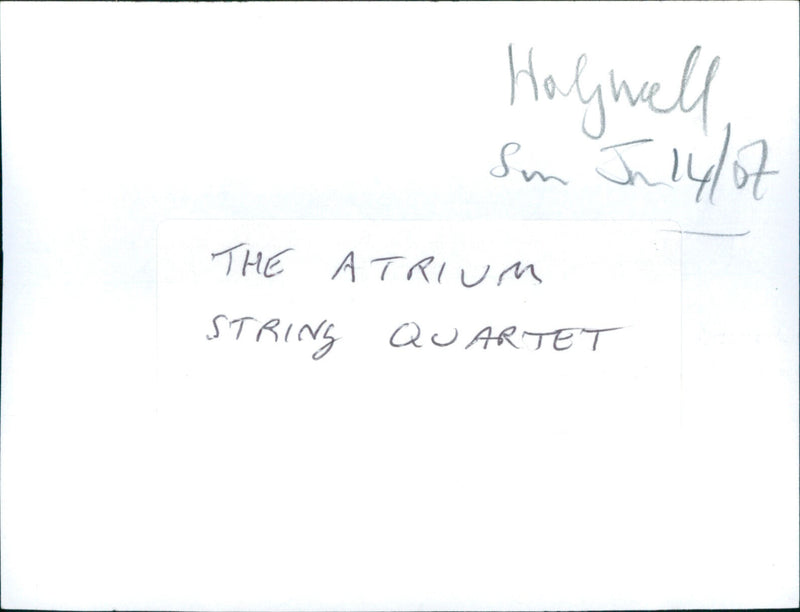 Holywell
Sun Jan 14/07
THE ATRIUM
STRING QUARTET